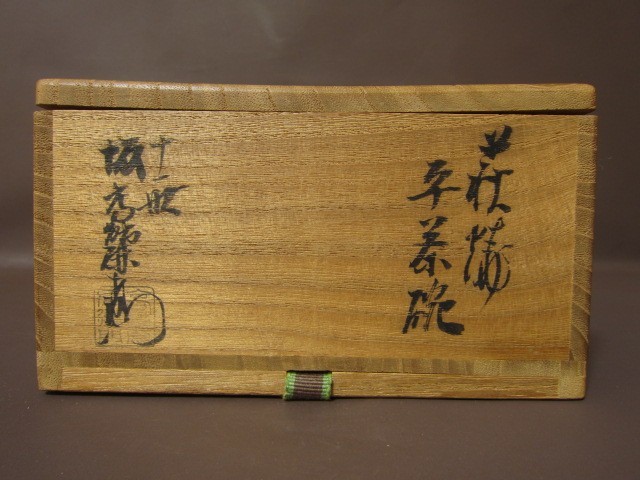 萩焼
平茶碗
十一世
坂高麗左衛門